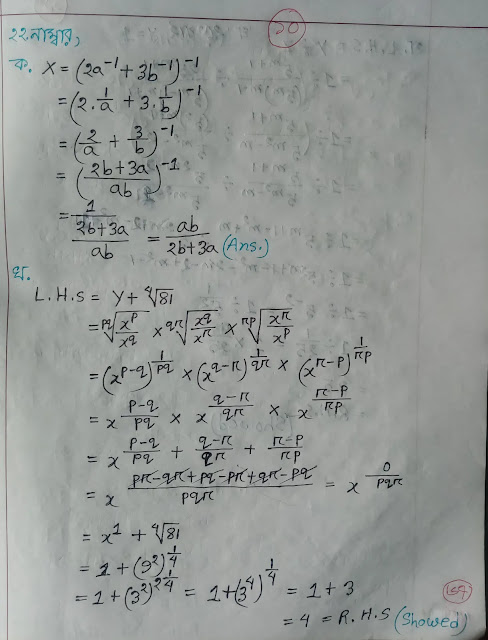 ১০
২২ নাম্বার,
ক. X = (2a⁻¹ + 3b⁻¹)⁻¹
= (2·1/a + 3·1/b)⁻¹
= (2/a + 3/b)⁻¹
= ((2b+3a)/ab)⁻¹
= 1/((2b+3a)/ab) = ab/(2b+3a) (Ans.)
খ.
L.H.S = Y + ⁴√81
= ᵖᑫ√(xᵖ/x^q) × ^(qπ)√(x^q/x^π) × ^(πp)√(x^π/x^p)
= (x^(p-q))^(1/pq) × (x^(q-π))^(1/qπ) × (x^(π-p))^(1/πp)
= x^((p-q)/pq) × x^((q-π)/qπ) × x^((π-p)/πp)
= x^((p-q)/pq + (q-π)/qπ + (π-p)/πp)
= x^((pπ-qπ+pq-pπ+qπ-pq)/pqπ) = x^(0/pqπ)
= x¹ + ⁴√81
= 1 + (9²)^(1/4)
= 1 + (3²)^(2·1/4) = 1 + (3⁴)^(1/4) = 1 + 3
= 4 = R.H.S (Showed)